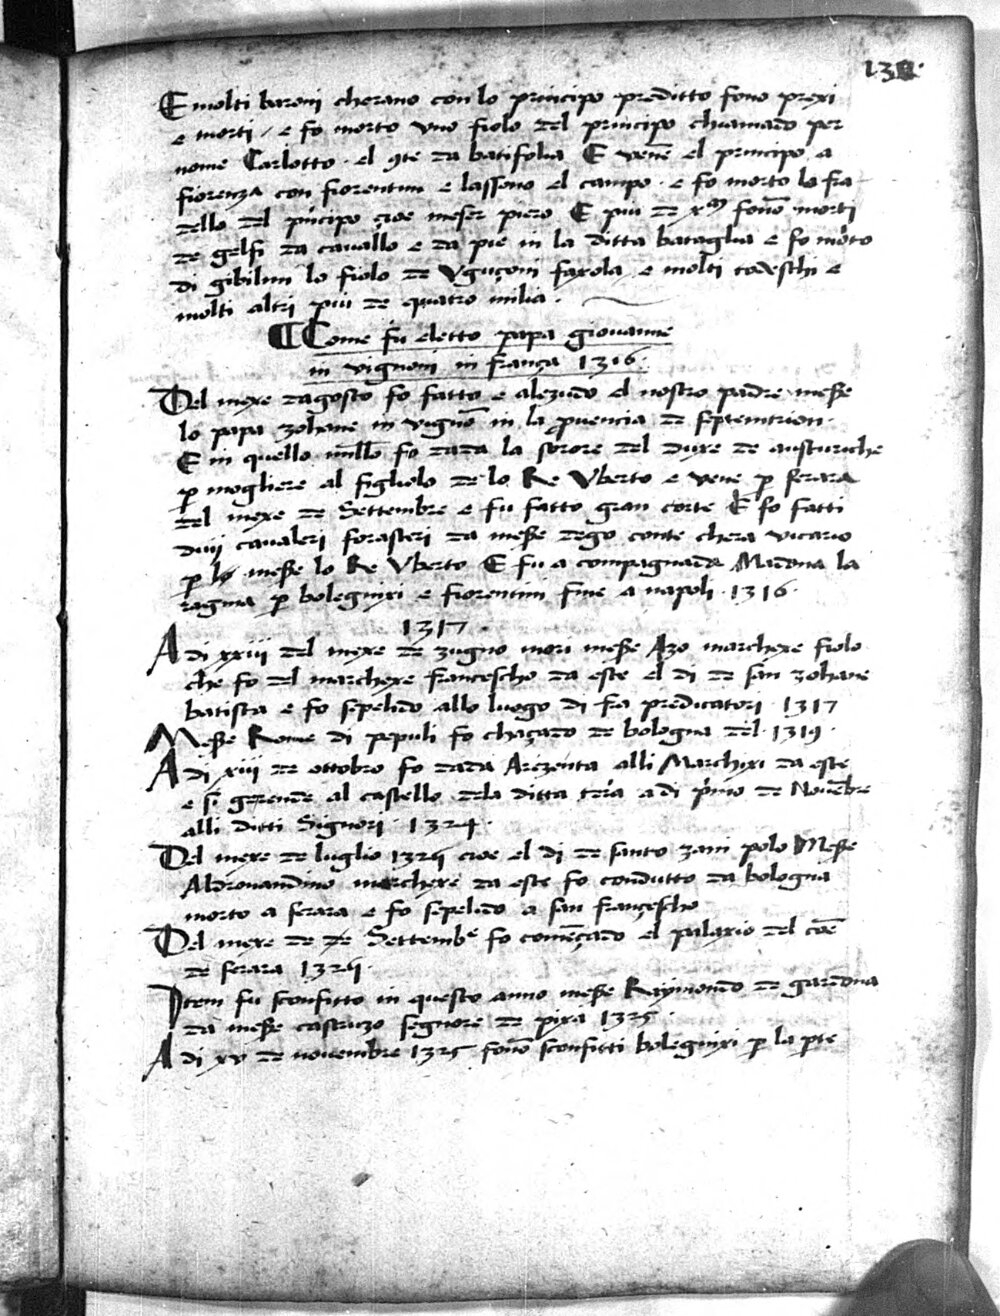 E molti baroni cherano con lo principo preditto fono prexi
e morti / e fo morto uno fiolo del principo chiamado per
nome Carlotto . el 9te da batifolia E vene el principo a
fiorenza con fiorentini e lassono el campo . e fo morto lo fra
dello del pricipo çioe meser piero E piu de xm fono morti
de gelfi da cavallo e da pie in la ditta bataglia e fo morto
di gibilini lo fiolo de Uguçoni faxola e molti todeschi e
molti altri piu de quatro milia .
Come fu eletto papa giovanne
in vignoni in frança 1316 .
Del mexe dagosto fo fatto e alezudo el nostro padre messe
lo papa zohane in vignon in la provencia de septentrion .
E in quello fo dada la sorore del duxe de austuriche
p mogliere al figliolo de lo Re Uberto e vene p ferara
del mexe de Settembre e fu fatto gran corte E fo fatti
duij cavaleri forasteri da messe dego conte chera vicario
p lo messe lo Re Uberto E fu a compagnada Madona la
ragina p bolegnixi e fiorentini fine a napoli . 1316 .
1317 .
A di xxiii del mexe de zugno mori messe Azo marchexe fiolo
che fo del marchexe francescho da este el di de san zohane
batista e fo sepelido allo luogo di fra predicatori . 1317
Messe Rome di pepuli fo chaçado de bologna del . 1319 .
A di xiii de ottobro fo dada Arzenta alli Marchixi da este
e si gerende al castello dela ditta tera a di primo de Novebre
alli ditti Signori . 1324 .
Del mexe de luglio 1326 cioe el di de santo zani polo Messe
Aldrovandino marchexe da este fo condutto da bologna
morto a ferara e fo sepelido a san françescho
Del mexe de de Settembe fo començado el palaxio del coe
de ferara 1326 .
Item fu sconfitto in questo anno messe Raymondo de gardona
da messe castruzo segnore de pixa 1325 .
A di xv de novembre 1325 fono sconfitti bolegnixi p la pte